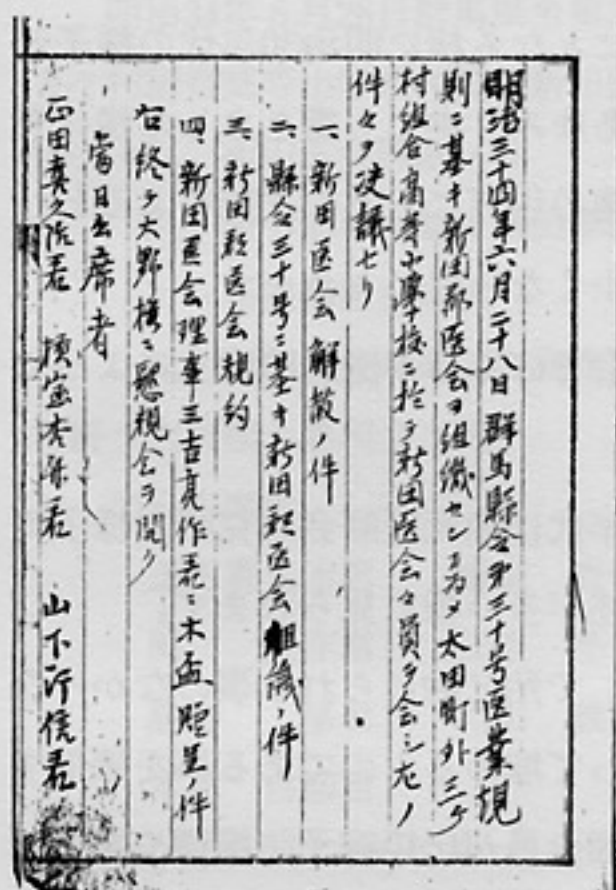 明治三十四年六月二十八日群馬縣令第三十号医業規
則ニ基キ新田郡医会ヲ組織センヿ為メ太田町外三ヶ
村組合高等小學校ニ於テ新田医会々員ヲ会シ左ノ
件々ヲ决議セリ
一、新田医会解散ノ件
二、縣令三十号ニ基キ新田郡医会組織ノ件
三、新田郡医会規約
四、新田医会理事三吉亮作君ニ木盃贈呈ノ件
右終テ大野樓ニ懇親会ヲ開ク
當日出席者
正田真之 君 君 山下 信君